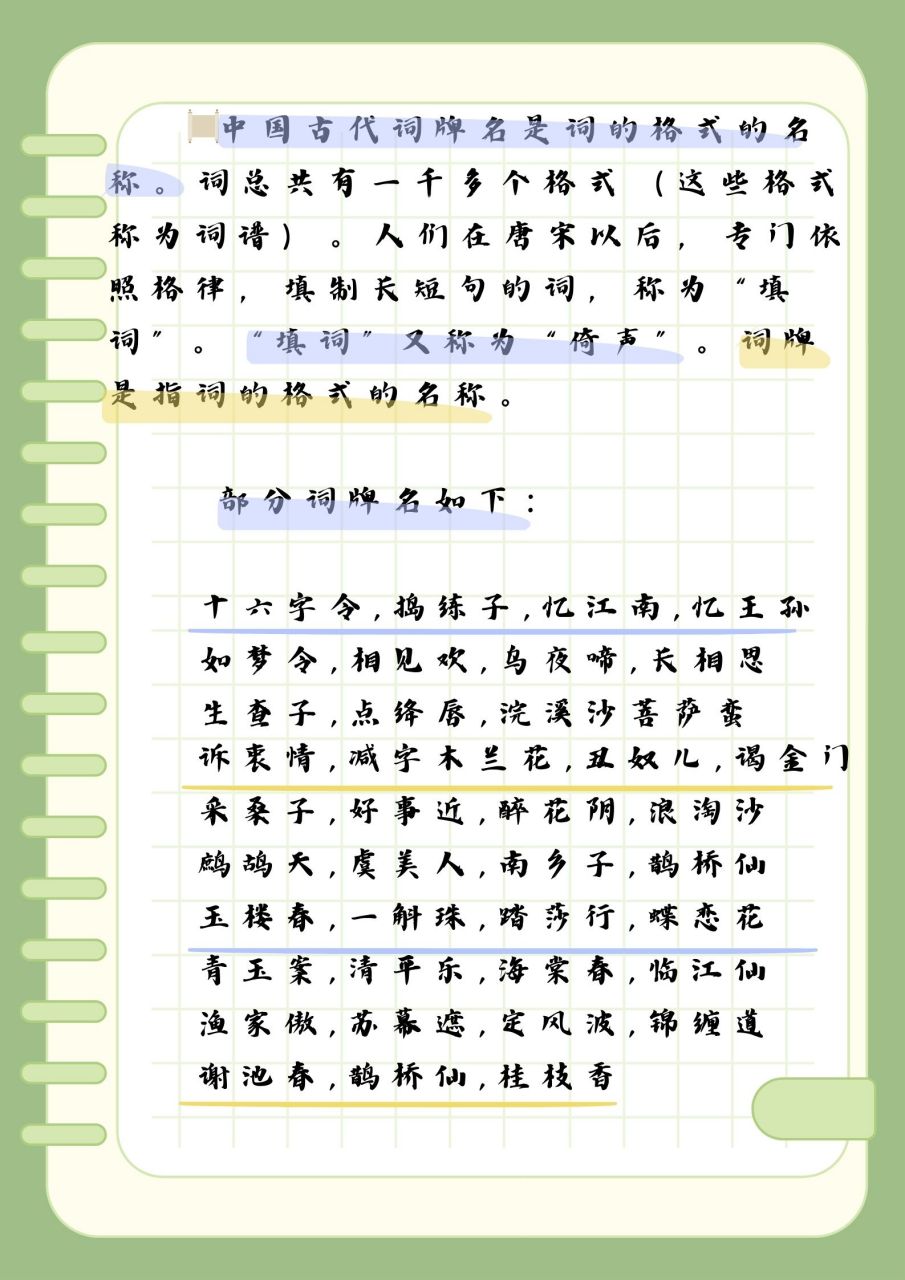 中国古代词牌名是词的格式的名
称。词总共有一千多个格式（这些格式
称为词谱）。人们在唐宋以后，专门依
照格律，填制长短句的词，称为“填
词”。“填词”又称为“倚声”。词牌
是指词的格式的名称。
部分词牌名如下：
十六字令,捣练子,忆江南,忆王孙
如梦令,相见欢,乌夜啼,长相思
生查子,点绛唇,浣溪沙菩萨蛮
诉衷情,减字木兰花,丑奴儿,谒金门
采桑子,好事近,醉花阴,浪淘沙
鹧鸪天,虞美人,南乡子,鹊桥仙
玉楼春,一斛珠,踏莎行,蝶恋花
青玉案,清平乐,海棠春,临江仙
渔家傲,苏幕遮,定风波,锦缠道
谢池春,鹊桥仙,桂枝香